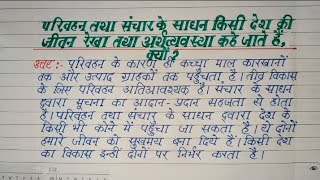 परिवहन तथा संचार के साधन किसी देश की
जीवन रेखा तथा अर्थव्यवस्था कहे जाते हैं,
क्यों ?
उत्तर :- परिवहन के कारण ही कच्चा माल कारखानों
तक और उत्पाद ग्राहकों तक पहुँचता है। तीव्र विकास
के लिए परिवहन अतिआवश्यक है। संचार के साधन
द्वारा सूचना का आदान-प्रदान सहजता से होता
है। परिवहन तथा संचार के साधन द्वारा देश के
किसी भी कोने में पहुँचा जा सकता है। ये दोनों
हमारे जीवन को सुखमय बना दिये हैं। किसी देश
का विकास इन्हीं दोनों पर निर्भर करता है।